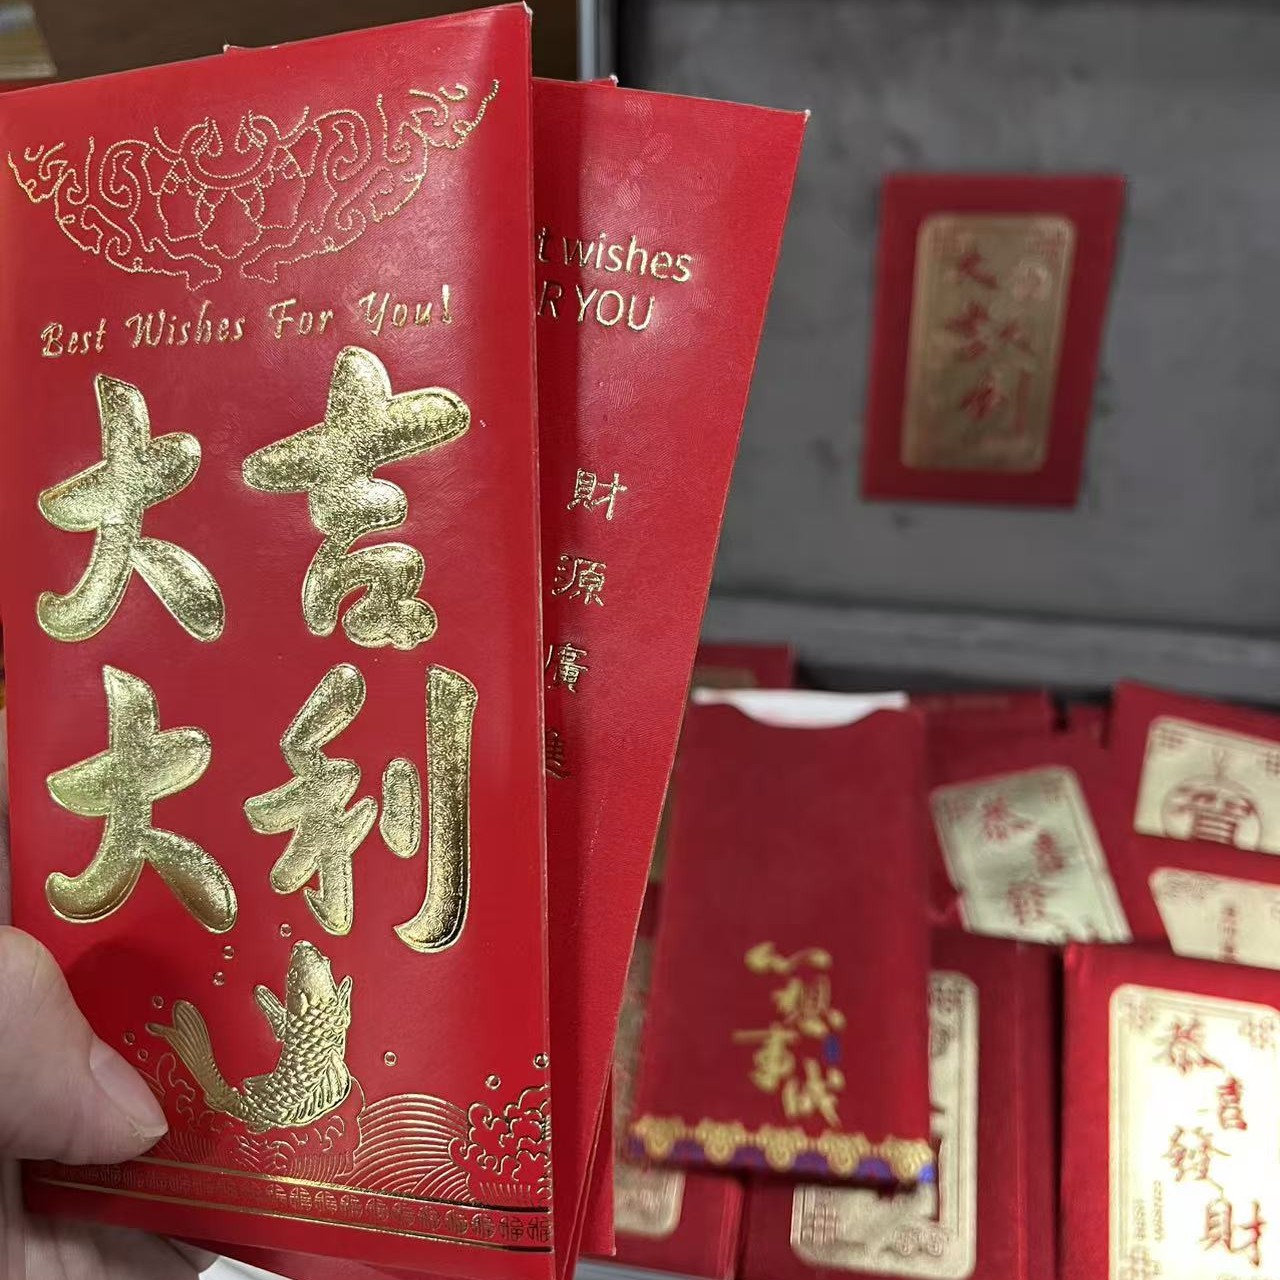 Best Wishes For You!
大吉
大利
t wishes
R YOU
財源廣進
大吉大利
心想事成
恭喜發
賀
恭喜發財